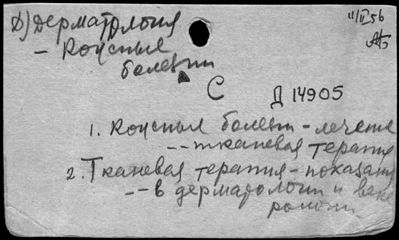 Д) Дерматология
11/II 56
– Кожные
болезни
С
Д 14905
1. Кожные болезни – лечение
-- тканевая терапия
2. Тканевая терапия – показания
-- в дерматологии и вене
рологии